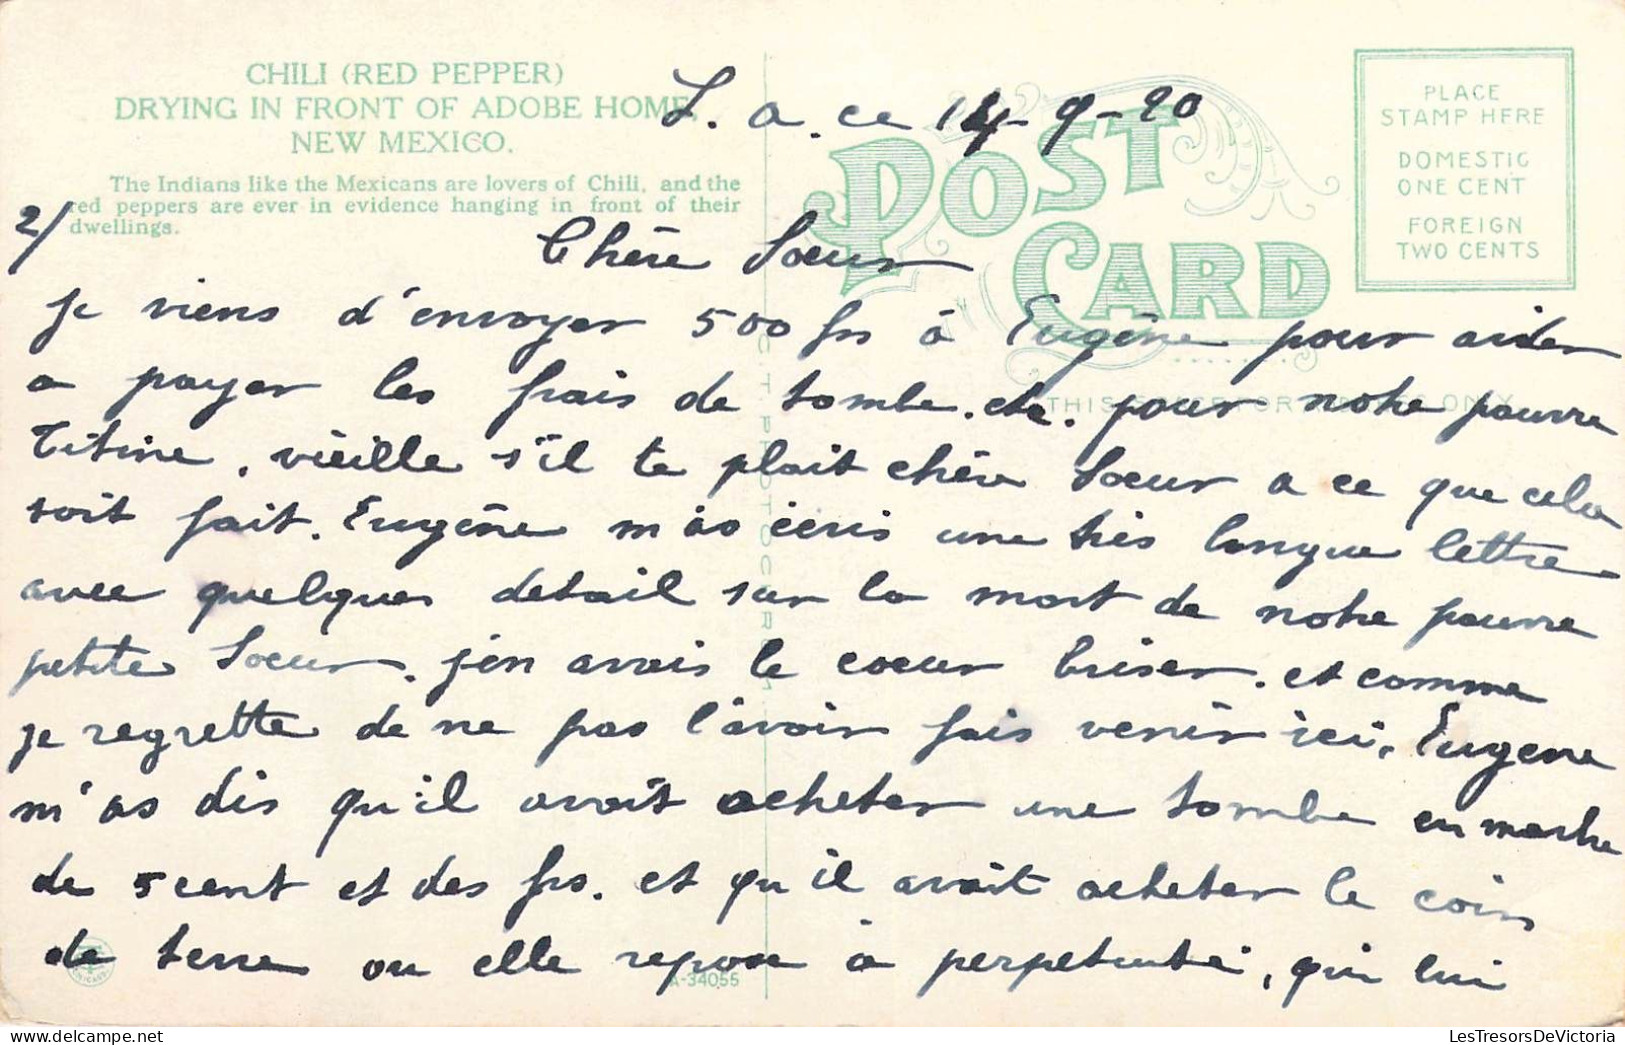 CHILI (RED PEPPER)
DRYING IN FRONT OF ADOBE HOME,
NEW MEXICO.
The Indians like the Mexicans are lovers of Chili, and the
red peppers are ever in evidence hanging in front of their
dwellings.
POST CARD
PLACE
STAMP HERE
DOMESTIC
ONE CENT
FOREIGN
TWO CENTS
C.T. PHOTOCHROM
L. a. ce 14-9-20
2/
Chère Soeur
je viens d'envoyer 500 frs à Eugène pour aider
a payer les frais de tombe. etc. pour notre pauvre
Titine, vieille s'il te plait chère Soeur a ce que cela
soit fait. Eugène m'as écris une très longue lettre
avec quelques detail sur la mort de notre pauvre
petite Soeur, j'en avais le coeur briser. et comme
je regrette de ne pas l'avoir fais venir ici, Eugene
m'as dis qu'il avait acheter une tombe en marbre
de 5 cent et des frs. et qu'il avait acheter le coin
de terre ou elle repose à perpetuité, qui lui
A-34055
LesTresorsDeVictoria